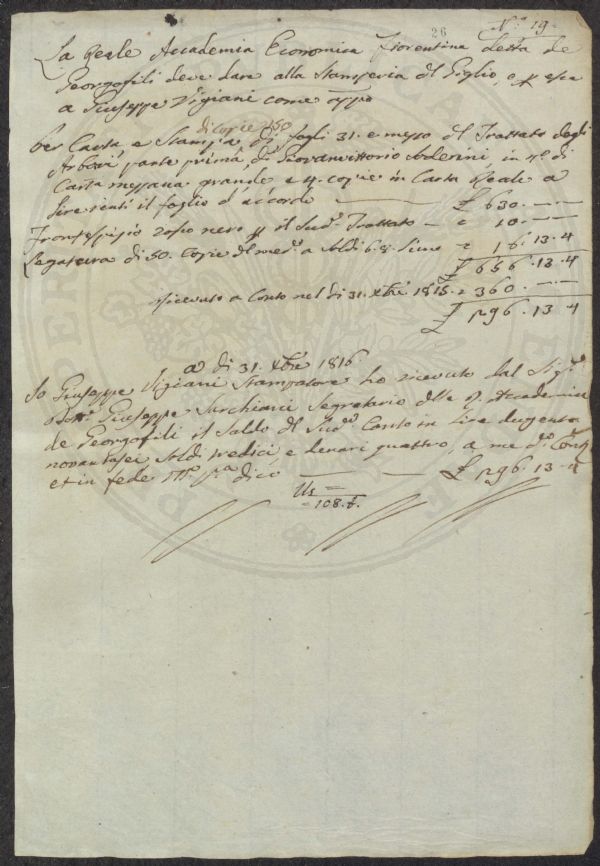 26 N.° 19.
La Reale Accademia Economica Fiorentina detta de
Georgofili deve dare alla Stamperia del Giglio, e p. essa
a Giuseppe Vigiani come app.o
di copie 750
Per Carta e Stampa di fogli 31. e mezzo del Trattato degli
Arbori parte prima, di Giovanvittorio Soderini, in 4.° di
Carta mezzana grande, e 4. copie in Carta Reale a
lire venti il foglio d'accordo £ 630. — —
Frontespizio rosso nero p. il Sud.° Trattato — 10. — —
Legatura di 50. Copie del med.° a Soldi 6.8. l'uno 16. 13. 4
£ 656. 13. 4
ricevuto a Conto nel dì 31. Xbre 1815. 360. — —
£ 296. 13. 4
a dì 31. Xbre 1816.
Io Giuseppe Vigiani Stampatore ho ricevuto dal Sig.r
Dott. Giuseppe Sarchiani Segretario della R. Accademia
de Georgofili il Saldo del Sud.° Conto in lire dugento
novantasei Soldi tredici, e denari quattro, a me d.° Conti
et in fede M.° P.a dico £ 296. 13. 4
108. f.